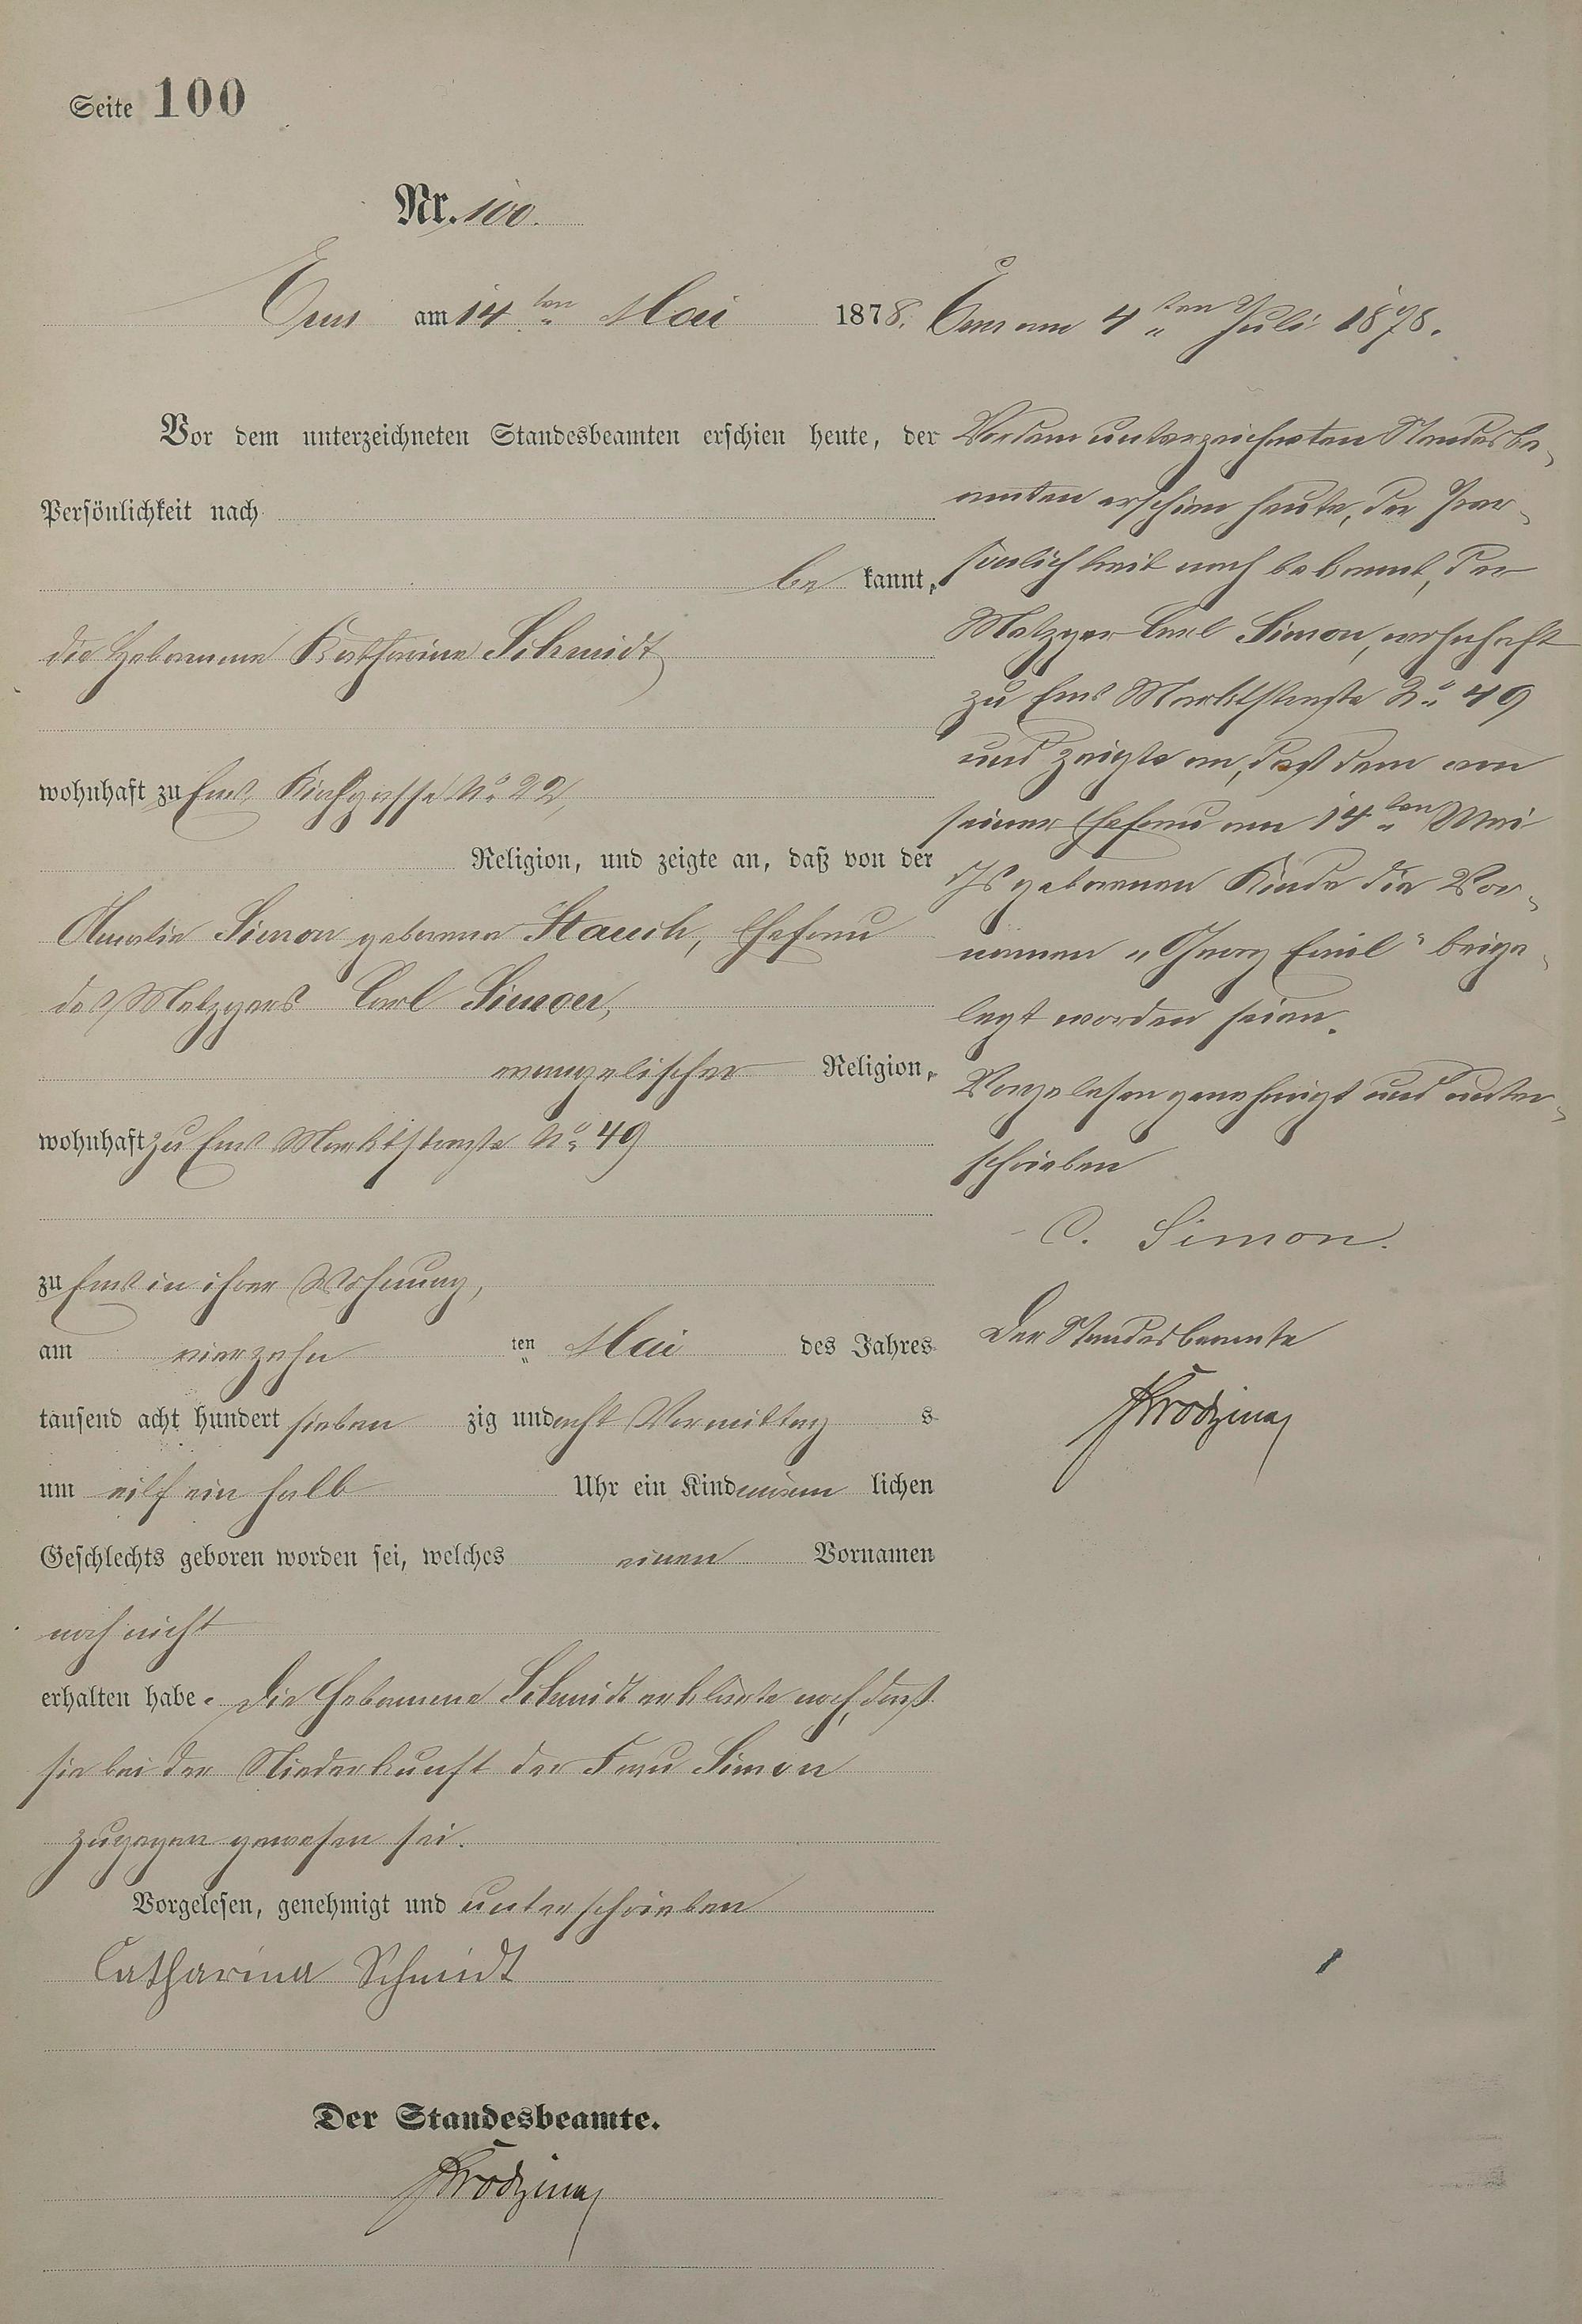 Seite 100
Nr. 100.
Ems am 14ten Mai 1878.
Vor dem unterzeichneten Standesbeamten erschien heute, der
Persönlichkeit nach
be kannt,
die Hebamme Katharina Schmidt
wohnhaft zu Ems, Kirchgasse No 22,
Religion, und zeigte an, daß von der
Amalie Simon geborene Stauch, Ehefrau
des Metzgers Carl Simon,
evangelischer Religion,
wohnhaft zu Ems Marktstraße No 49
zu Ems in ihrer Wohnung,
am vierzehn ten Mai des Jahres
tausend acht hundert sieben zig und acht Vormittag s
um eilf ein halb Uhr ein Kind männ lichen
Geschlechts geboren worden sei, welches einen Vornamen
noch nicht
erhalten habe. Die Hebamme Schmidt erklärte noch, daß
sie bei der Niederkunft der Frau Simon
zugegen gewesen sei.
Vorgelesen, genehmigt und unterschrieben
Catharina Schmidt
Der Standesbeamte.
Ems am 4ten Juli 1878.
Vor dem unterzeichneten Standesbe-
amten erschien heute, der Per-
sönlichkeit nach bekannt, der
Metzger Carl Simon, wohnhaft
zu Ems Marktstraße No 49
und zeigte an, daß dem von
seiner Ehefrau am 14ten Mai
ds Js geborenen Kinde die Vor-
namen „Georg Emil“ beige-
legt worden seien.
Vorgelesen genehmigt und unter-
schrieben
C. Simon.
Der Standesbeamte